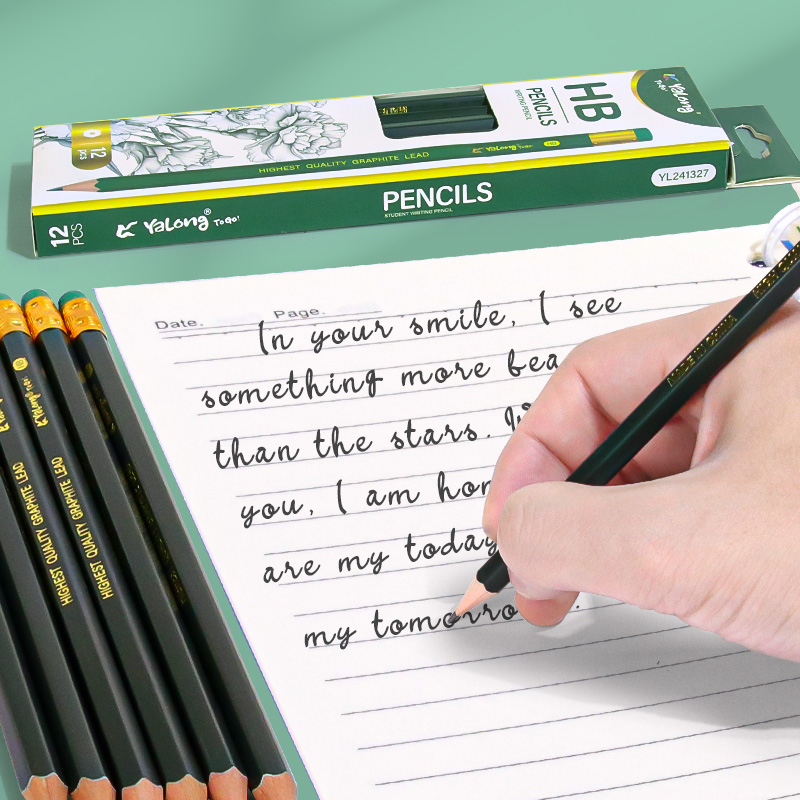 HB
PENCILS
WRITING PENCIL
Yalong®
ToGo!
12
PCS
HIGHEST QUALITY GRAPHITE LEAD
HB
12 PCS
Yalong® ToGo!
PENCILS
STUDENT WRITING PENCIL
YL241327
Date.
Page.
In your smile, I see
something more bea
than the stars.
you, I am hom
are my today
my tomorro
Yalong ToGo!
HIGHEST QUALITY GRAPHITE LEAD
HIGHEST QUALITY GRAPHITE LEAD